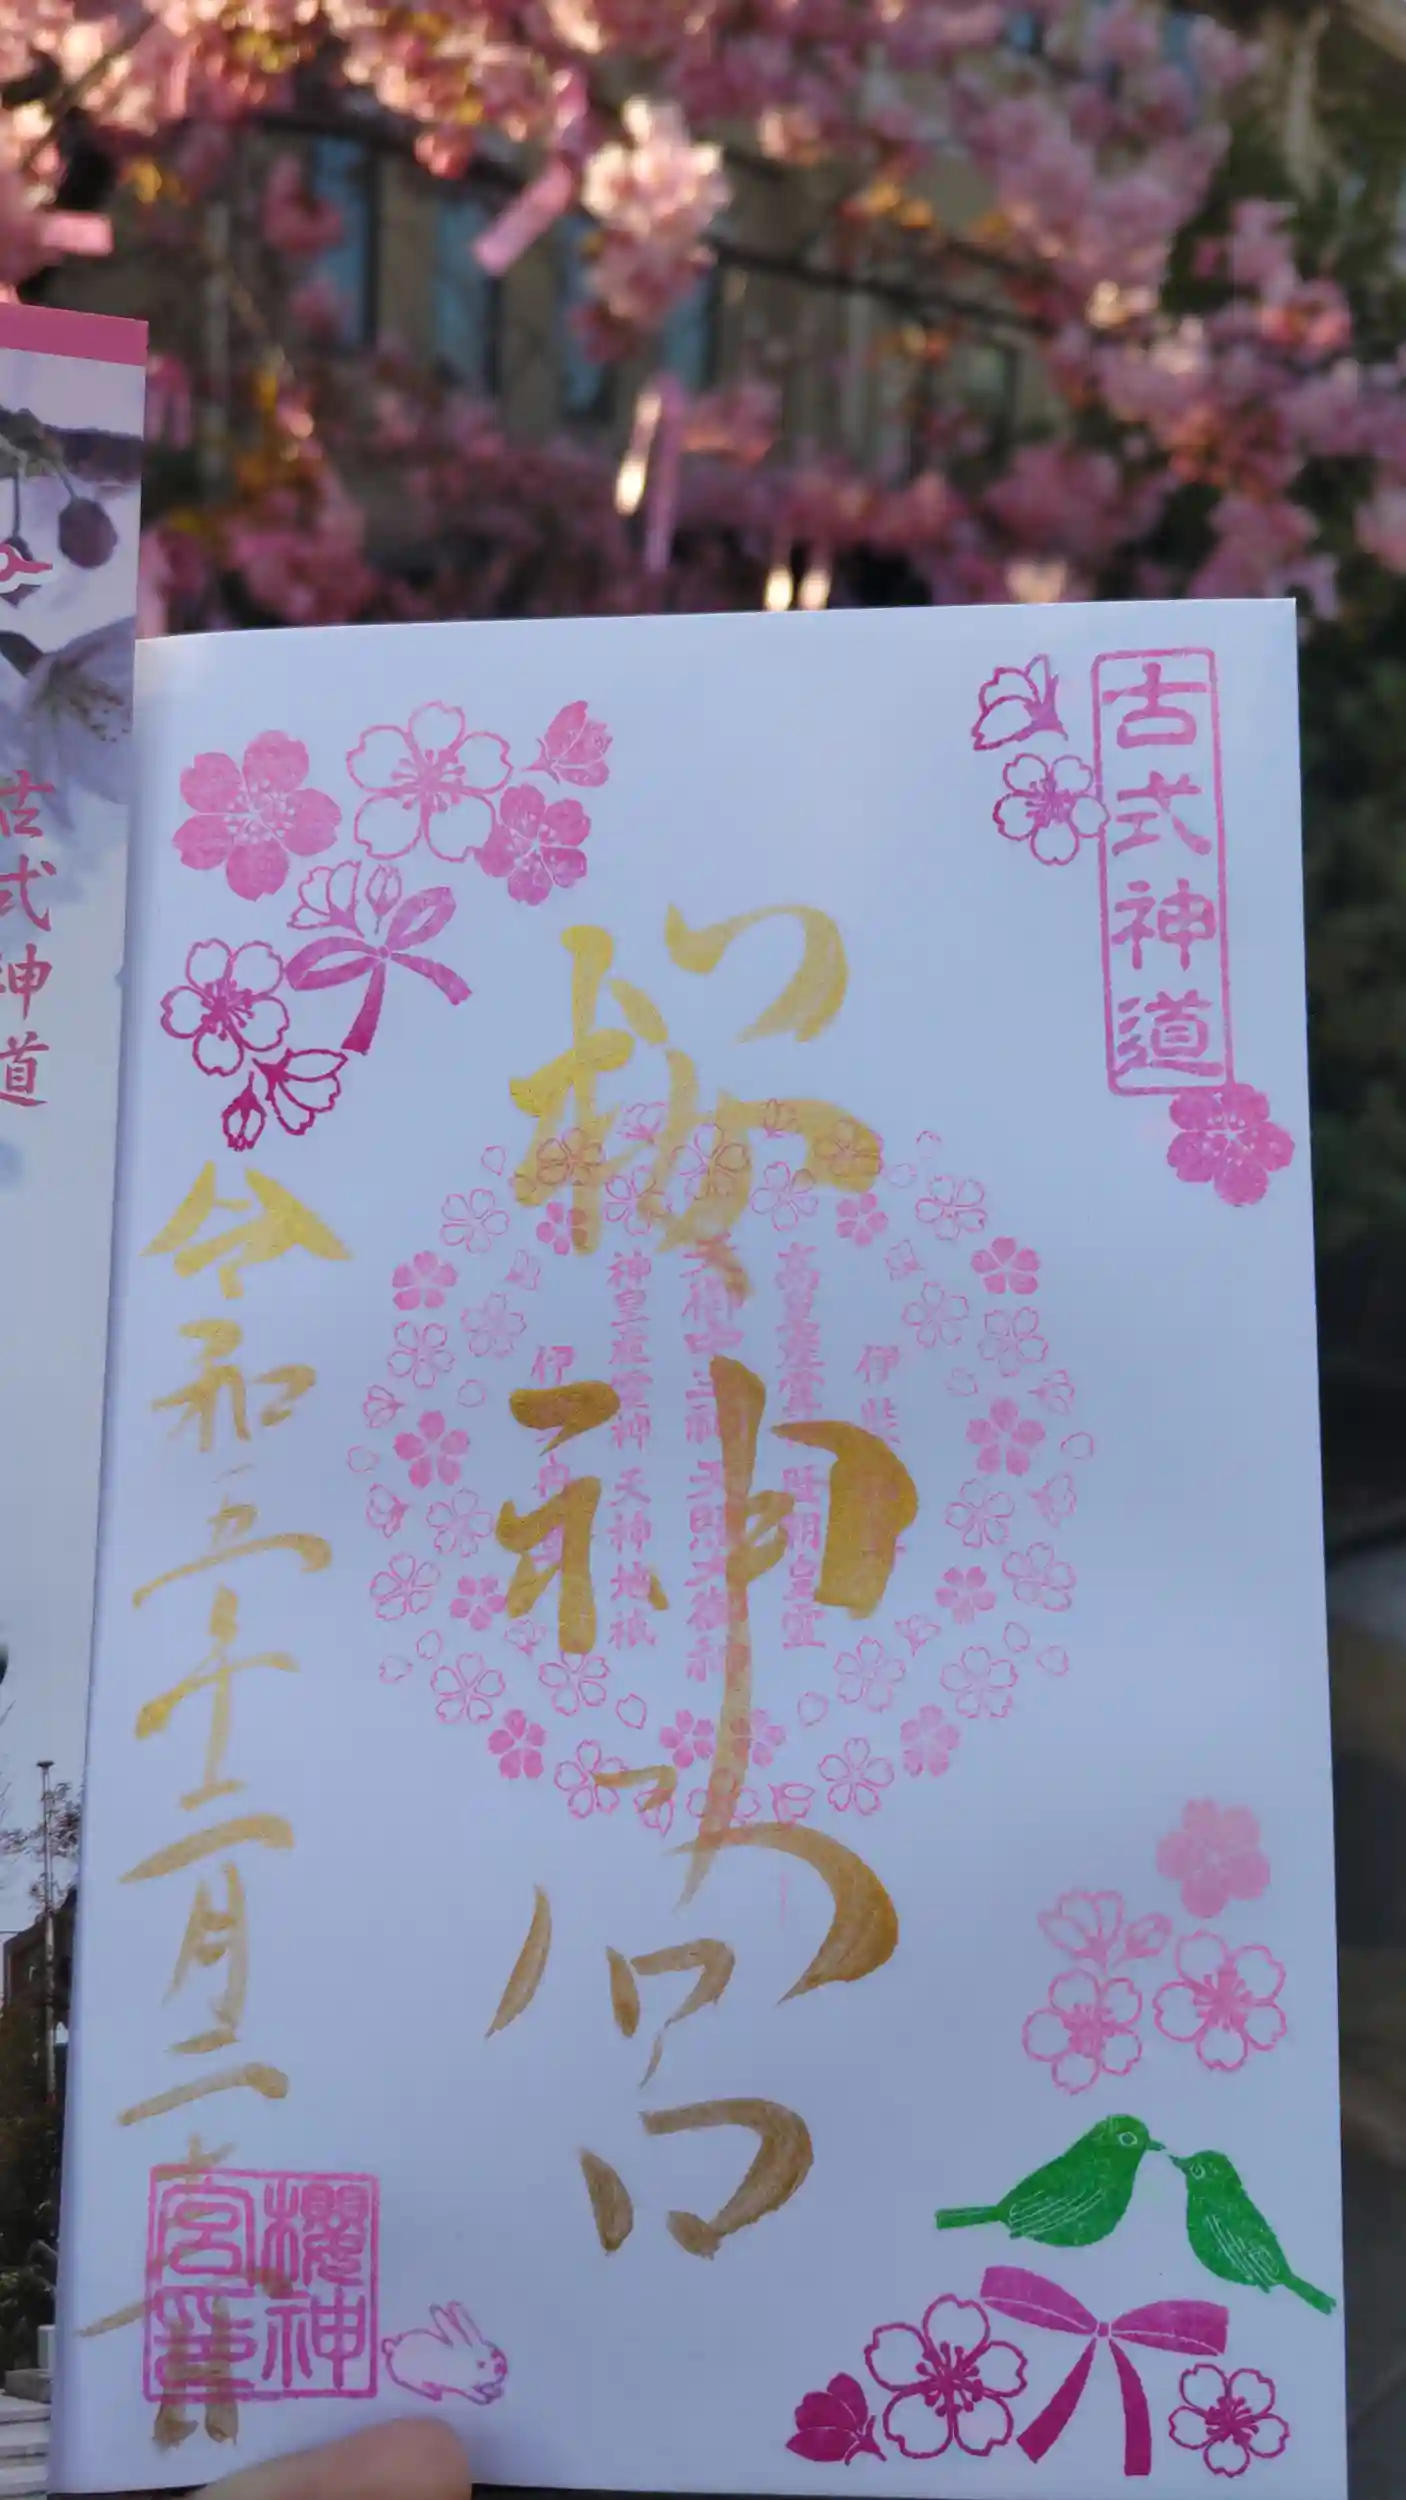 古式神道
桜神宮
高皇産霊神 歴朝皇霊
天御中主神 天照大御神
神皇産霊神 天神地祇
令和五年十二月二
櫻神
宮
古式神道